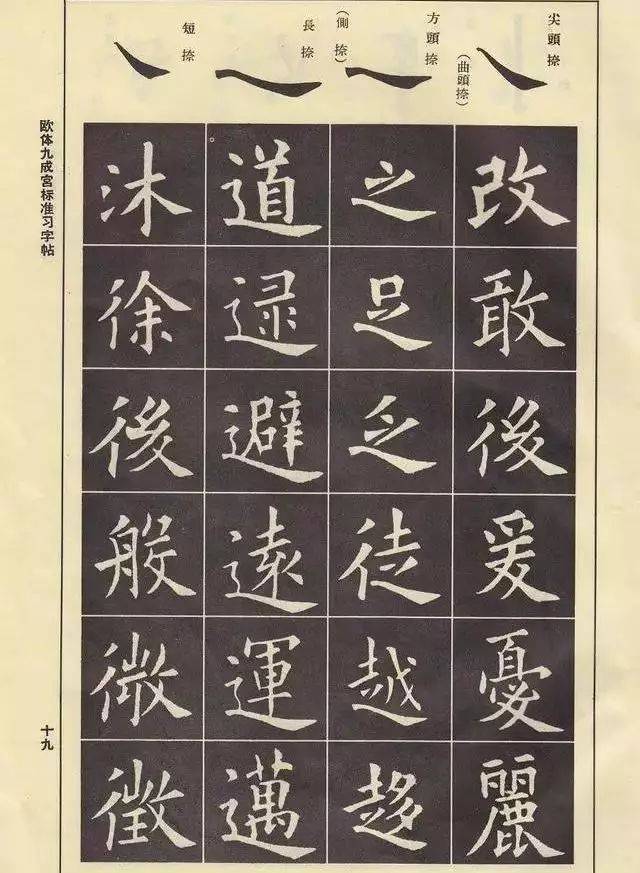 尖頭捺
(曲頭捺)
方頭捺
(側捺)
長捺
短捺
改敢後爰憂麗
之足乏徒越趍
道逮避遠運邁
沐徐後般微徵
欧体九成宮标准习字帖
十九